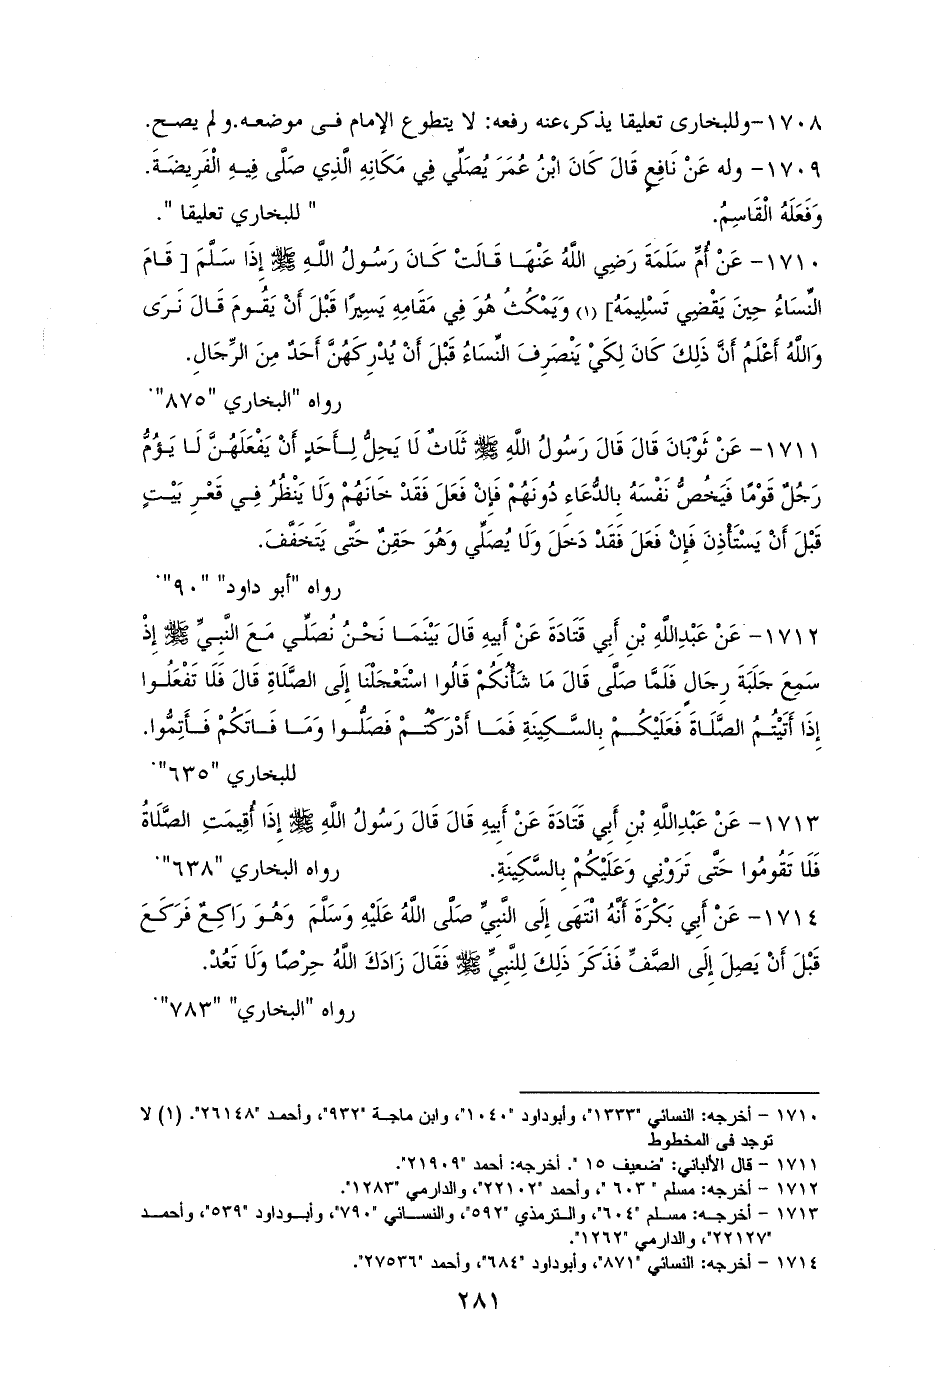 ١٧٠٨-وللبخارى تعليقا يذكر،عنه رفعه: لا يتطوع الإمام فى موضعه.و لم يصح.
١٧٠٩- وله عَنْ نَافِعٍ قَالَ كَانَ ابْنُ عُمَرَ يُصَلِّي فِي مَكَانِهِ الَّذِي صَلَّى فِيهِ الْفَرِيضَةَ.
وَفَعَلَهُ الْقَاسِمُ. " للبخاري تعليقا ".
١٧١٠- عَنْ أُمِّ سَلَمَةَ رَضِي اللَّهُ عَنْهَا قَالَتْ كَانَ رَسُولُ اللَّهِ ﷺ إِذَا سَلَّمَ [ قَامَ
النِّسَاءُ حِينَ يَقْضِي تَسْلِيمَهُ] (١) وَيَمْكُثُ هُوَ فِي مَقَامِهِ يَسِيرًا قَبْلَ أَنْ يَقُومَ قَالَ نَرَى
وَاللَّهُ أَعْلَمُ أَنَّ ذَلِكَ كَانَ لِكَيْ يَنْصَرِفَ النِّسَاءُ قَبْلَ أَنْ يُدْرِكَهُنَّ أَحَدٌ مِنَ الرِّجَالِ.
رواه "البخاري "٨٧٥".
١٧١١- عَنْ ثَوْبَانَ قَالَ قَالَ رَسُولُ اللَّهِ ﷺ ثَلَاثٌ لَا يَحِلُّ لِأَحَدٍ أَنْ يَفْعَلَهُنَّ لَا يَؤُمُّ
رَجُلٌ قَوْمًا فَيَخُصُّ نَفْسَهُ بِالدُّعَاءِ دُونَهُمْ فَإِنْ فَعَلَ فَقَدْ خَانَهُمْ وَلَا يَنْظُرُ فِي قَعْرِ بَيْتٍ
قَبْلَ أَنْ يَسْتَأْذِنَ فَإِنْ فَعَلَ فَقَدْ دَخَلَ وَلَا يُصَلِّي وَهُوَ حَقِنٌ حَتَّى يَتَخَفَّفَ.
رواه "أبو داود" "٩٠".
١٧١٢- عَنْ عَبْدِاللَّهِ بْنِ أَبِي قَتَادَةَ عَنْ أَبِيهِ قَالَ بَيْنَمَا نَحْنُ نُصَلِّي مَعَ النَّبِيِّ ﷺ إِذْ
سَمِعَ جَلَبَةَ رِجَالٍ فَلَمَّا صَلَّى قَالَ مَا شَأْنُكُمْ قَالُوا اسْتَعْجَلْنَا إِلَى الصَّلَاةِ قَالَ فَلَا تَفْعَلُوا
إِذَا أَتَيْتُمُ الصَّلَاةَ فَعَلَيْكُمْ بِالسَّكِينَةِ فَمَا أَدْرَكْتُمْ فَصَلُّوا وَمَا فَاتَكُمْ فَأَتِمُّوا.
للبخاري "٦٣٥".
١٧١٣- عَنْ عَبْدِاللَّهِ بْنِ أَبِي قَتَادَةَ عَنْ أَبِيهِ قَالَ قَالَ رَسُولُ اللَّهِ ﷺ إِذَا أُقِيمَتِ الصَّلَاةُ
فَلَا تَقُومُوا حَتَّى تَرَوْنِي وَعَلَيْكُمْ بِالسَّكِينَةِ. رواه البخاري "٦٣٨".
١٧١٤- عَنْ أَبِي بَكْرَةَ أَنَّهُ انْتَهَى إِلَى النَّبِيِّ صَلَّى اللَّهُ عَلَيْهِ وَسَلَّمَ وَهُوَ رَاكِعٌ فَرَكَعَ
قَبْلَ أَنْ يَصِلَ إِلَى الصَّفِّ فَذَكَرَ ذَلِكَ لِلنَّبِيِّ ﷺ فَقَالَ زَادَكَ اللَّهُ حِرْصًا وَلَا تَعُدْ.
رواه "البخاري" "٧٨٣".
١٧١٠ - أخرجه: النسائي "١٣٣٣"، وأبوداود "١٠٤٠"، وابن ماجة "٩٣٢"، وأحمد "٢٦١٤٨". (١) لا
توجد فى المخطوط
١٧١١ - قال الألباني: "ضعيف ١٥ ". أخرجه: أحمد "٢١٩٠٩".
١٧١٢ - أخرجه: مسلم " ٦٠٣ "، وأحمد "٢٢١٠٢"، والدارمي "١٢٨٣".
١٧١٣ - أخرجه: مسلم "٦٠٤"، والترمذي "٥٩٢"، والنسائي "٧٩٠"، وأبوداود "٥٣٩"، وأحمد
"٢٢١٢٧"، والدارمي "١٢٦٢".
١٧١٤ - أخرجه: النسائي "٨٧١"، وأبوداود "٦٨٤"، وأحمد "٢٧٥٣٦".
٢٨١